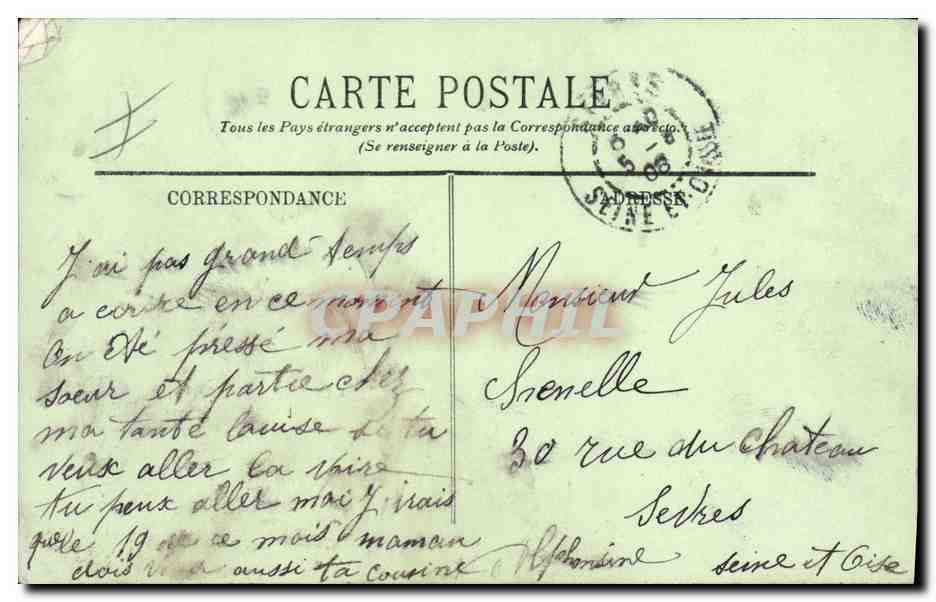 CARTE POSTALE
Tous les Pays étrangers n'acceptent pas la Correspondance au recto.
(Se renseigner à la Poste).
SEINE ET-OISE
CORRESPONDANCE
ADRESSE
J'ai pas grand temps
a ecrire en ce moment
on Eté préssé ma
soeur et partie chez
ma tante louise si tu
veux aller la voire
tu peux aller moi J'irais
que le 19 de ce mois maman
dois aussi ta cousine Alphonsine
Monsieur Jules
30 rue du chateau
Sevres
Seine et Oise
CPAPHIL